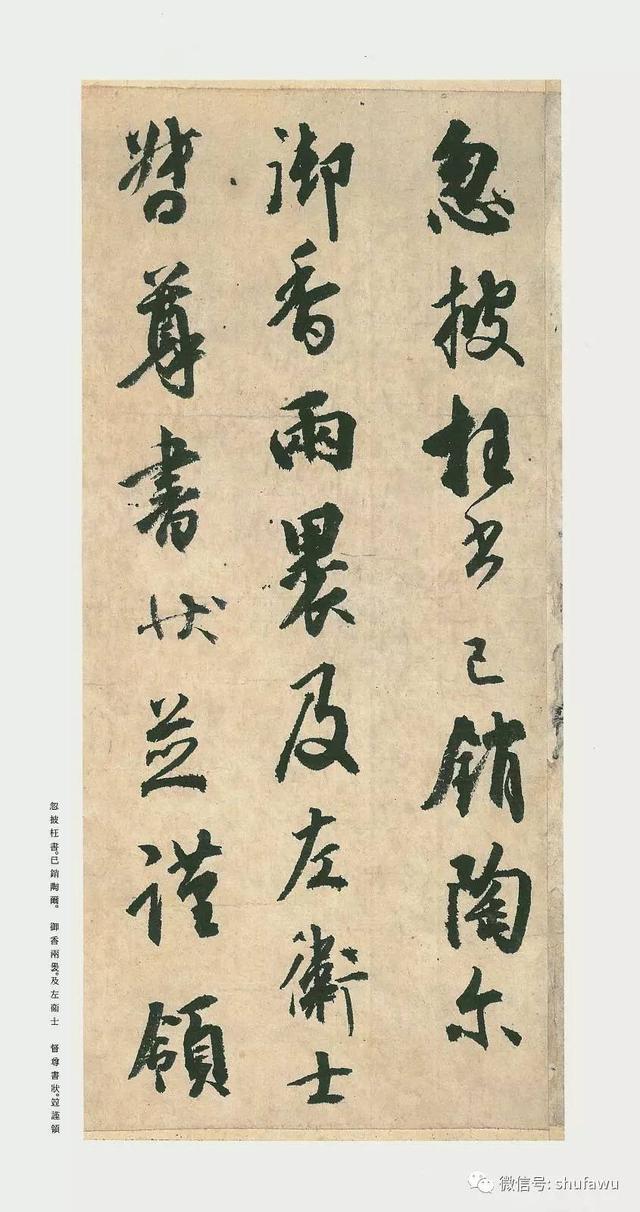 忽披枉书已銷陶尔
御香兩裹及左衛士
督尊書状並謹領
忽披枉書。已銷陶爾。 御香兩裹。及左衞士 督尊書狀。竝謹領
微信号: shufawu